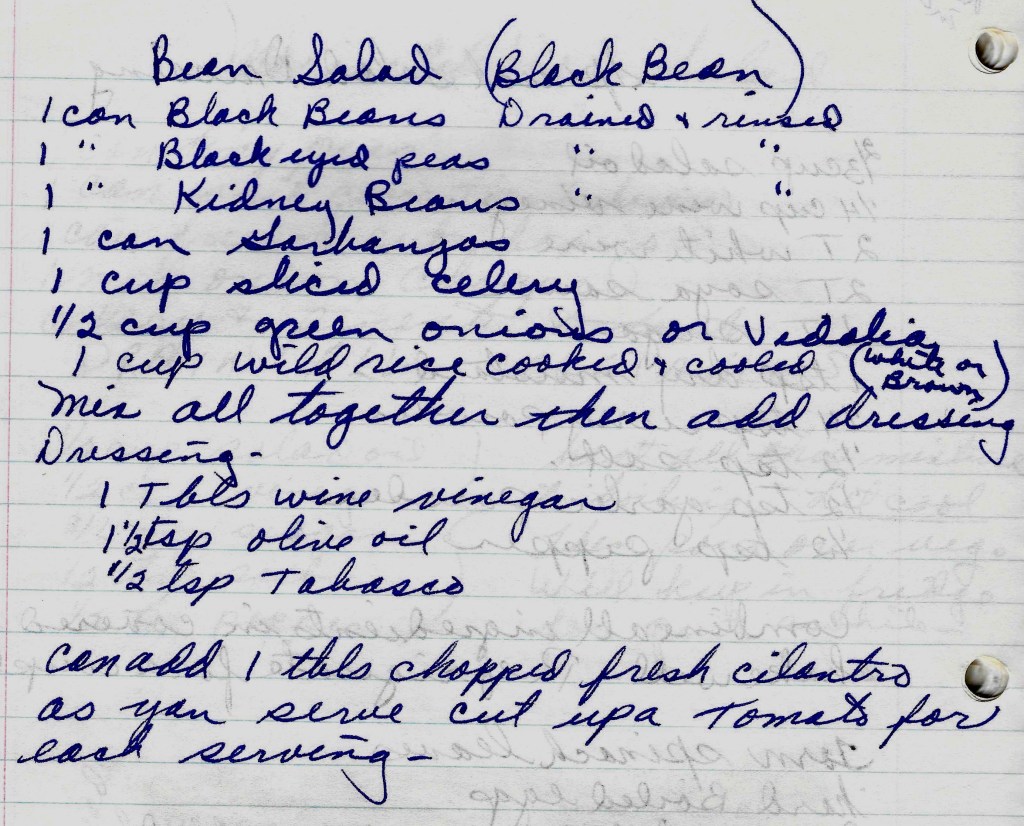 Bean Salad (Black Bean)
1 can Black Beans Drained & rinsed
1 " Blackeyed peas " "
1 " Kidney Beans " "
1 can Garbanzos
1 cup sliced celery
1/2 cup green onions or Vidalia
1 cup wild rice cooked & cooled (white or Brown)
Mix all together then add dressing
Dressing-
1 Tbls wine vinegar
1 1/2 tsp olive oil
1/2 tsp Tabasco
can add 1 tbls chopped fresh cilantro
as you serve cut up a Tomato for
each serving-